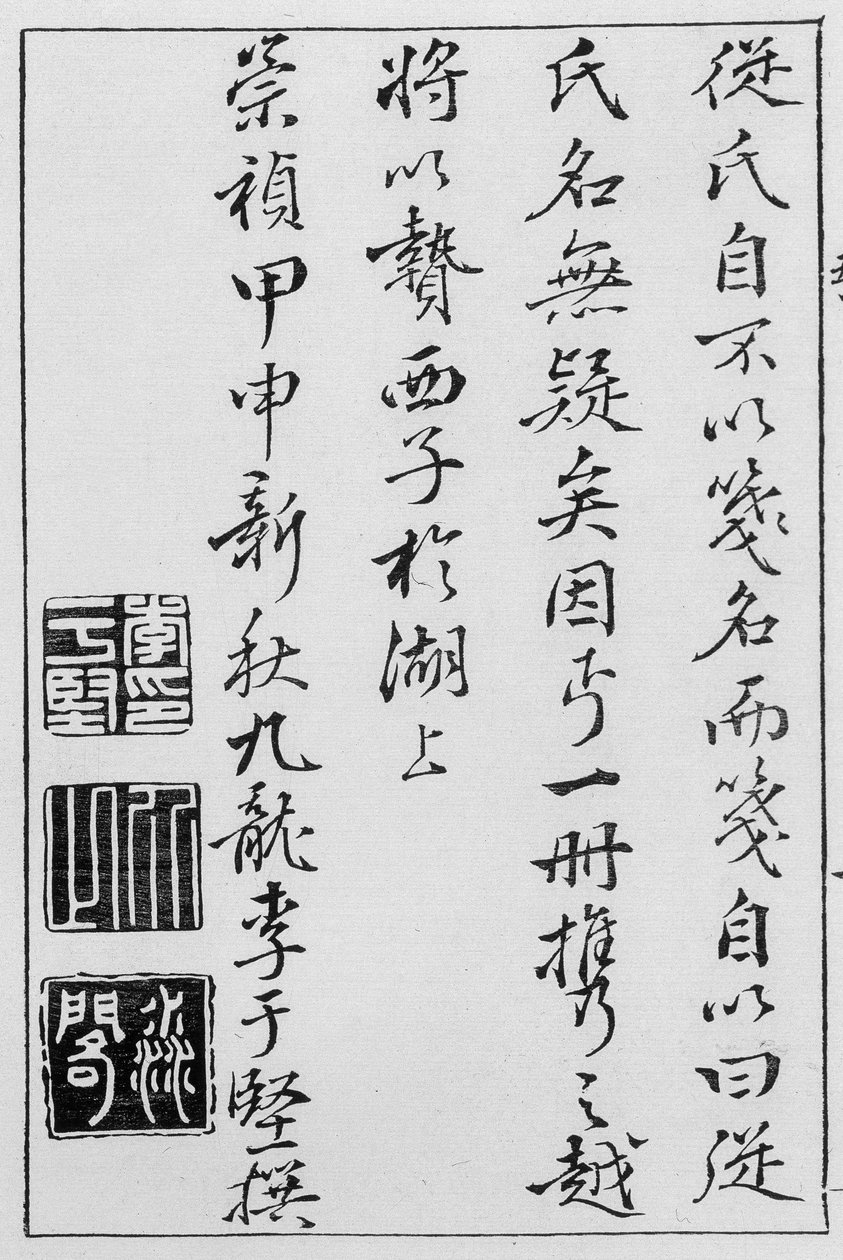 從氏自不以箋名而箋自以曰從
氏名無疑矣因丐一冊携之越
將以贄西子於湖上
崇禎甲申新秋九龍李于堅撰
李印于堅